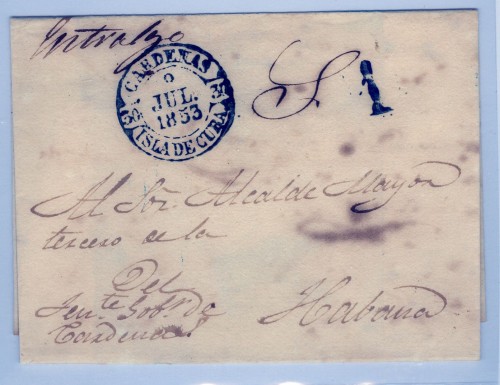 CARDENAS
9
JUL.
1853
ISLA DE CUBA
S. 1
Al Sõr. Alcalde Mayor
tercero de la
Habana
Del
Tene.te Gob.r de
Cardenas